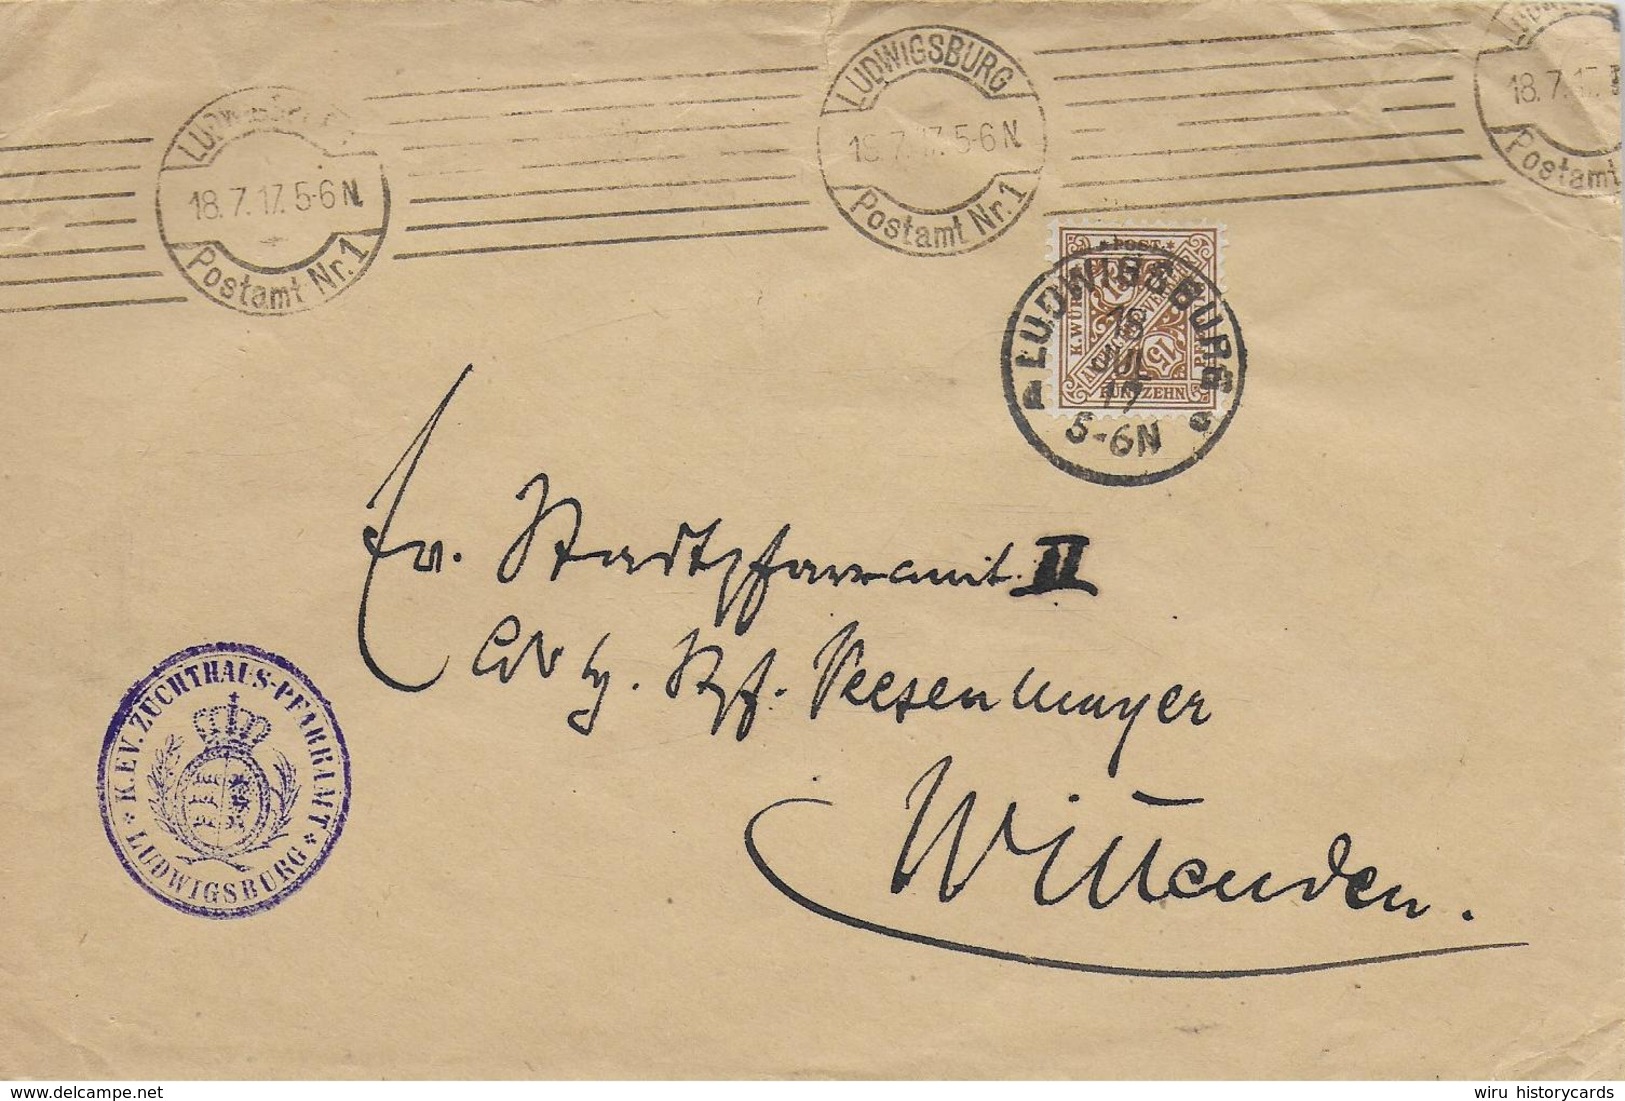 LUDWIGSBURG
18.7.17. 5-6 N
Postamt Nr. 1
LUDWIGSBURG
18.7.17. 5-6 N
Postamt Nr. 1
18.7.17.
Postamt
* POST *
K.WÜRTT.
15
FÜNFZEHN
LUDWIGSBURG
18
JUL
17
5-6N
Ev. Stadtpfarramt II
Stpf. Reesenmayer
Winnenden.
* K.EV. ZUCHTHAUS-PFARRAMT *
LUDWIGSBURG
delcampe.net
wiru historycards